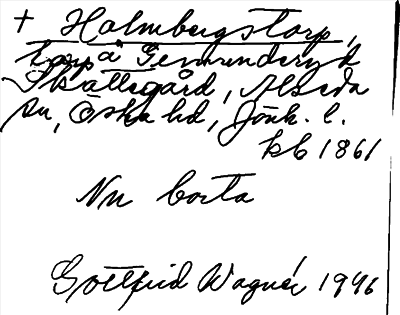 + Holmbergstorp,
torp å Gemmenderyd
Skattegård, Alseda
sn, Östra hd, Jönk. l.
kb 1861
Nu borta
Gottfrid Wagnér 1946